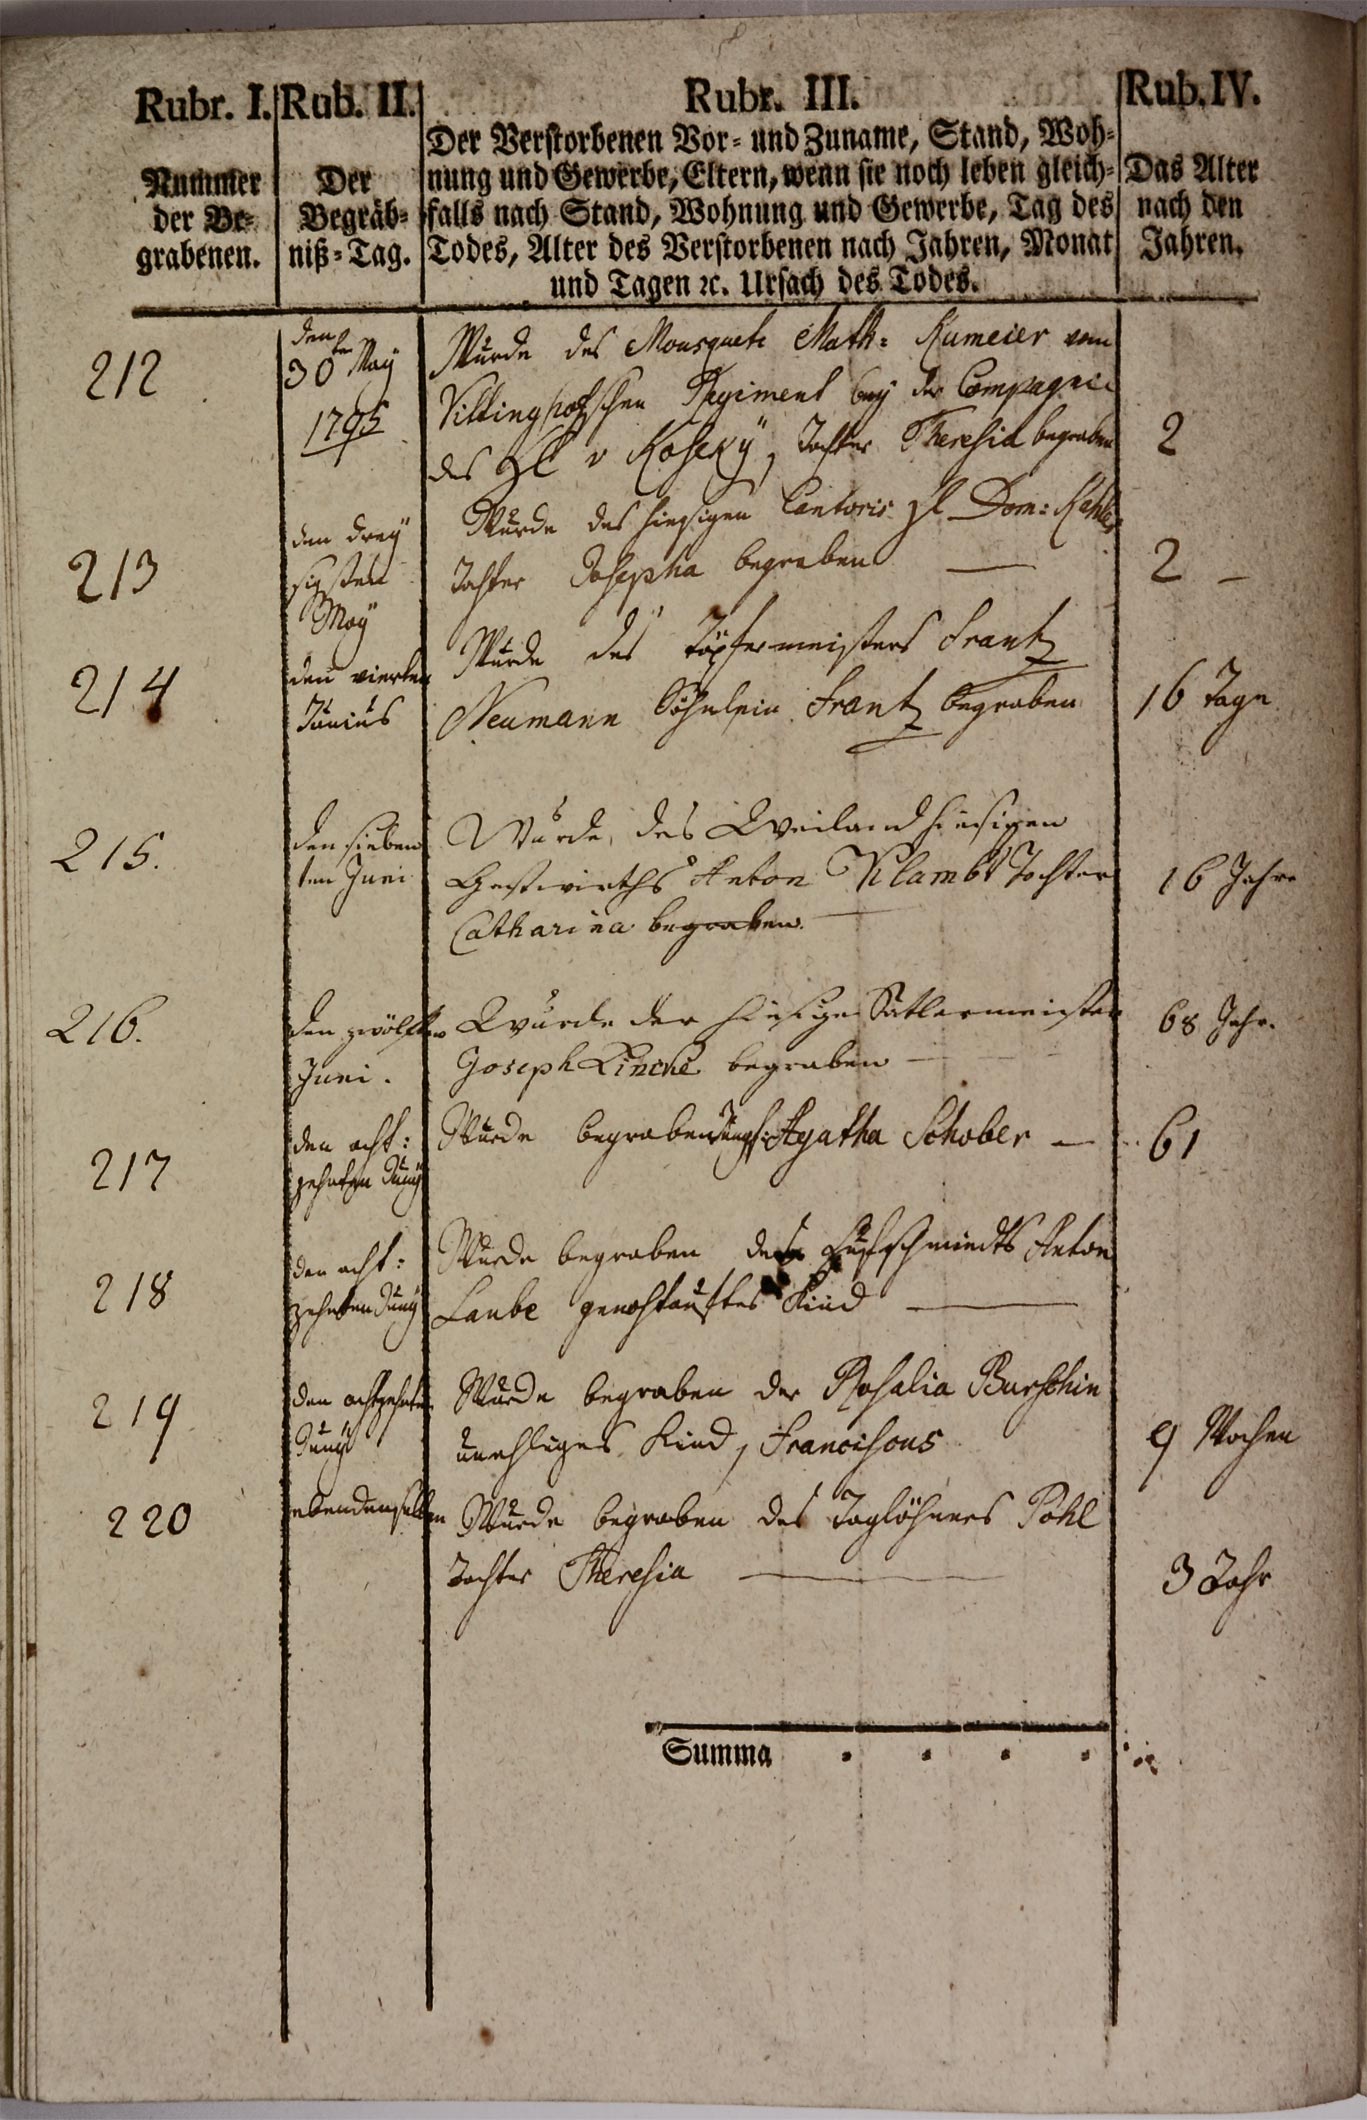 Rubr. I. Rub. II. Rubr. III. Rub. IV.
Nummer
der Be-
grabenen.
Der
Begräb-
niß-Tag.
Der Verstorbenen Vor- und Zuname, Stand, Woh-
nung und Gewerbe, Eltern, wenn sie noch leben gleich-
falls nach Stand, Wohnung und Gewerbe, Tag des
Todes, Alter des Verstorbenen nach Jahren, Monat
und Tagen ꝛc. Ursach des Todes.
Das Alter
nach den
Jahren.
212
den
30ten May
1795
Wurde des Mousquet Math: Kumeier vom
Vittinghofschen Regiment bey der Compagnie
des v Koseky, Tochter Theresia begraben
2
213
den drey
sigsten
May
Wurde des hiesigen Cantoris Dom: Kahler
Tochter Josepha begraben —
2 —
214
den vierten
Junius
Wurde des Töpfermeisters Frantz
Neumann Söhnlein Frantz begraben
16 Tage
215.
den sieben
ten Juni
Wurde, des Weiland hiesigen
Gastwirths Anton Klambt Tochter
Catharina begraben. —
16 Jahre
216.
den zwölften
Juni.
Wurde der hiesige Satlermeister
Joseph begraben —
68 Jahr.
217
den acht:
zehnten Juny
Wurde begraben Jungf: Agatha Schober —
61
218
den acht:
zehnten Juny
Wurde begraben des Hufschmiedts Anton
Laube genothtauftes Kind —
219
den achtzehnten
Juny
Wurde begraben der Rosalia Burschin
unehliges Kind, Franciscus
9 Wochen
220
ebendenselben
Wurde begraben des Taglöhners Pohl
Tochter Theresia —
3 Jahr
Summa - - - -